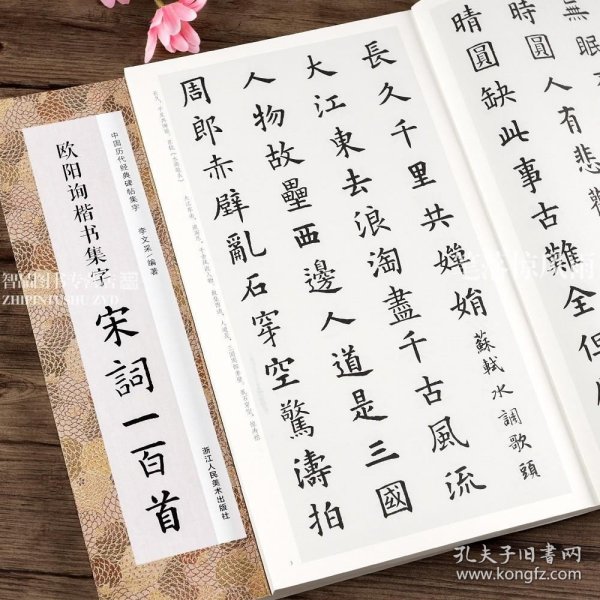 中国历代经典碑帖集字
欧阳询楷书集字
李文采/编著
宋詞一百首
浙江人民美术出版社
智品图书专
ZHIPINTUSHU ZYD
無眠不
時圓人有悲歡
晴圓缺此事古難全但
長久千里共嬋娟
蘇軾水調歌頭
大江東去浪淘盡千古風流
人物故壘西邊人道是三國
周郎赤壁亂石穿空驚濤拍
孔夫子旧書网
www.kongfz.com